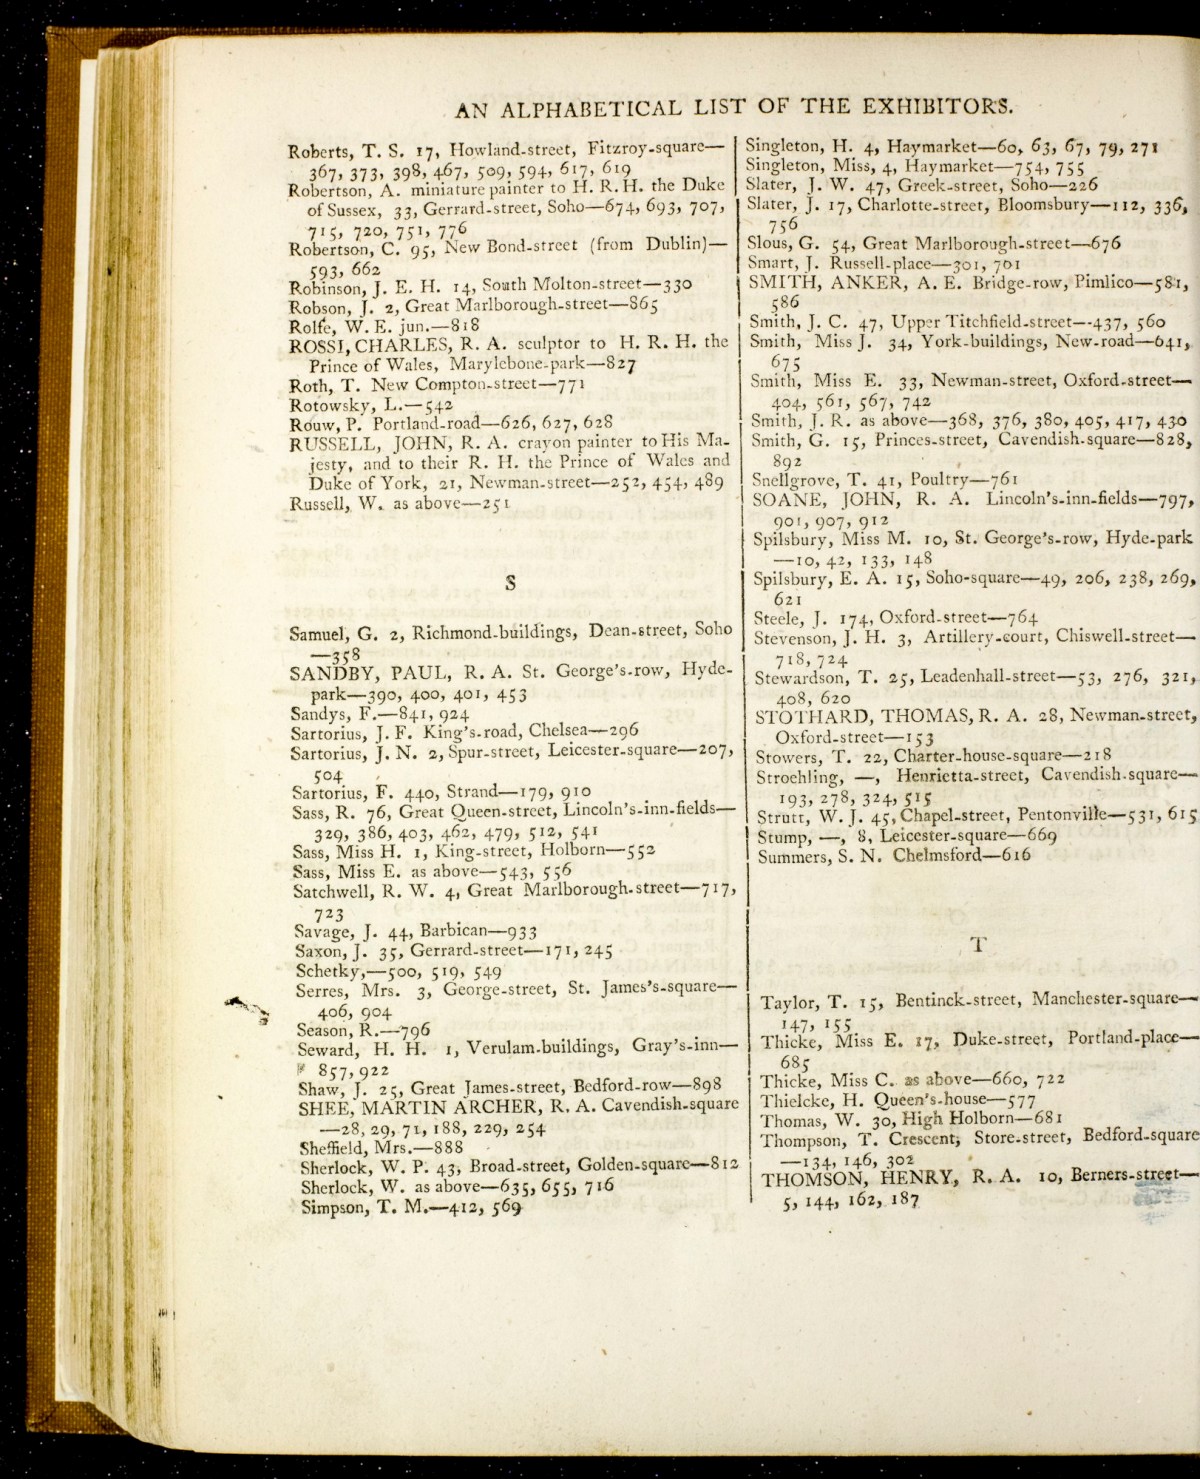 AN ALPHABETICAL LIST OF THE EXHIBITORS.
Roberts, T. S. 17, Howland-street, Fitzroy-square—
367, 373, 398, 467, 509, 594, 617, 619
Robertson, A. miniature painter to H. R. H. the Duke
of Sussex, 33, Gerrard-street, Soho—674, 693, 707,
715, 720, 751, 776
Robertson, C. 95, New Bond-street (from Dublin)—
593, 662
Robinson, J. E. H. 14, South Molton-street—330
Robson, J. 2, Great Marlborough-street—865
Rolfe, W. E. jun.—818
ROSSI, CHARLES, R. A. sculptor to H. R. H. the
Prince of Wales, Marylebone-park—827
Roth, T. New Compton-street—771
Rotowsky, L.—542
Rouw, P. Portland-road—626, 627, 628
RUSSELL, JOHN, R. A. crayon painter to His Ma-
jesty, and to their R. H. the Prince of Wales and
Duke of York, 21, Newman-street—252, 454, 489
Russell, W. as above—251
S
Samuel, G. 2, Richmond-buildings, Dean-street, Soho
—358
SANDBY, PAUL, R. A. St. George's-row, Hyde-
park—390, 400, 401, 453
Sandys, F.—841, 924
Sartorius, J. F. King's-road, Chelsea—296
Sartorius, J. N. 2, Spur-street, Leicester-square—207,
504
Sartorius, F. 440, Strand—179, 910
Sass, R. 76, Great Queen-street, Lincoln's-inn-fields—
329, 386, 403, 462, 479, 512, 541
Sass, Miss H. 1, King-street, Holborn—552
Sass, Miss E. as above—543, 556
Satchwell, R. W. 4, Great Marlborough-street—717,
723
Savage, J. 44, Barbican—933
Saxon, J. 35, Gerrard-street—171, 245
Schetky,—500, 519, 549
Serres, Mrs. 3, George-street, St. James's-square—
406, 904
Season, R.—796
Seward, H. H. 1, Verulam-buildings, Gray's-inn—
857, 922
Shaw, J. 25, Great James-street, Bedford-row—898
SHEE, MARTIN ARCHER, R. A. Cavendish-square
—28, 29, 71, 188, 229, 254
Sheffield, Mrs.—888
Sherlock, W. P. 43, Broad-street, Golden-square—812
Sherlock, W. as above—635, 655, 716
Simpson, T. M.—412, 569
Singleton, H. 4, Haymarket—60, 63, 67, 79, 271
Singleton, Miss, 4, Haymarket—754, 755
Slater, J. W. 47, Greek-street, Soho—226
Slater, J. 17, Charlotte-street, Bloomsbury—112, 336,
756
Slous, G. 54, Great Marlborough-street—676
Smart, J. Russell-place—301, 701
SMITH, ANKER, A. E. Bridge-row, Pimlico—581,
586
Smith, J. C. 47, Upper Titchfield-street—437, 560
Smith, Miss J. 34, York-buildings, New-road—641,
675
Smith, Miss E. 33, Newman-street, Oxford-street—
404, 561, 567, 742
Smith, J. R. as above—368, 376, 380, 405, 417, 430
Smith, G. 15, Princes-street, Cavendish-square—828,
892
Snellgrove, T. 41, Poultry—761
SOANE, JOHN, R. A. Lincoln's-inn-fields—797,
901, 907, 912
Spilsbury, Miss M. 10, St. George's-row, Hyde-park
—10, 42, 133, 148
Spilsbury, E. A. 15, Soho-square—49, 206, 238, 269,
621
Steele, J. 174, Oxford-street—764
Stevenson, J. H. 3, Artillery-court, Chiswell-street—
718, 724
Stewardson, T. 25, Leadenhall-street—53, 276, 321,
408, 620
STOTHARD, THOMAS, R. A. 28, Newman-street,
Oxford-street—153
Stowers, T. 22, Charter-house-square—218
Stroehling, —, Henrietta-street, Cavendish-square—
193, 278, 324, 515
Strutt, W. J. 45, Chapel-street, Pentonville—531, 615
Stump, —, 8, Leicester-square—669
Summers, S. N. Chelmsford—616
T
Taylor, T. 15, Bentinck-street, Manchester-square—
147, 155
Thicke, Miss E. 17, Duke-street, Portland-place—
685
Thicke, Miss C. as above—660, 722
Thielcke, H. Queen's-house—577
Thomas, W. 30, High Holborn—681
Thompson, T. Crescent, Store-street, Bedford-square
—134, 146, 302
THOMSON, HENRY, R. A. 10, Berners-street—
5, 144, 162, 187